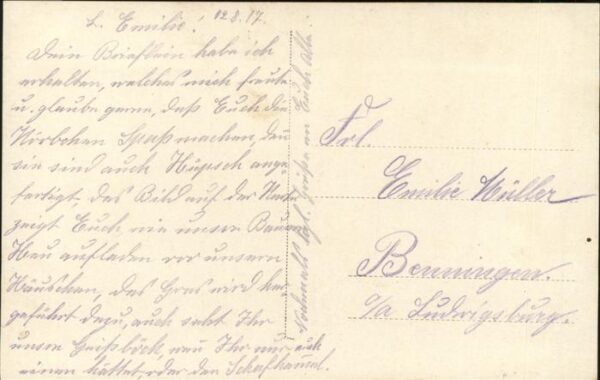 L. Emilie! 12.8.17.
Dein Brieflein habe ich
erhalten, welches mich freute
u. glaube gerne, daß Euch die
Körbchen Spaß machen, den
sie sind auch Hüpsch ange-
fertigt, das Bild auf der
zeigt Euch wie unsere Bauern
Heu aufladen vor unsern
Häuschen, das Gras wird her
geführt dazu, auch seht Ihr
unsere Geißböck, wen Ihr nur auch
einen hättet, oder den Schafhammel.
Nochmals hzl. Grüße an Euch Alle
Frl.
Emilie Müller
Benningen.
o/a Ludwigsburg.